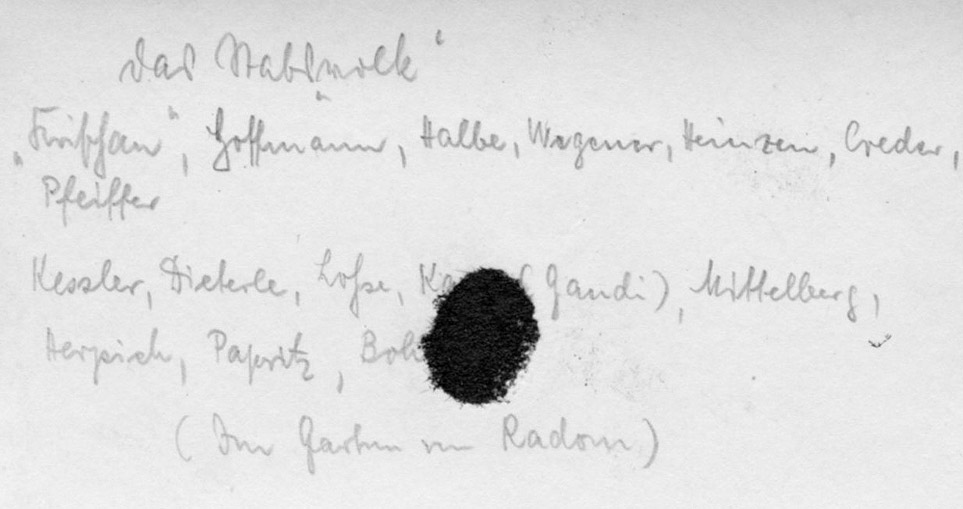 das Stabsvolk"
Hoffmann, Halbe, Wegener, Heinzen, Creder,
Pfeiffer
Kessler, Dieterle, Lohse, Gandi), Mittelberg,
Herpich, Papritz,
(Im Garten von Radom)